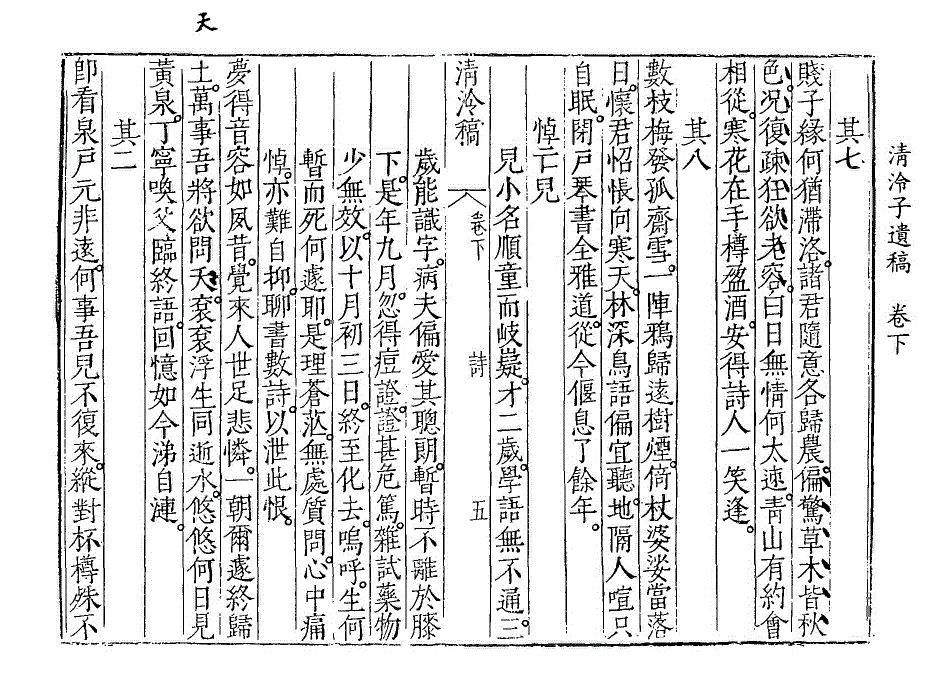 天
清泠子遺稿　卷下
其七
賤子緣何猶滯洛。諸君隨意各歸農。偏驚草木皆秋
色。况復疎狂欲老容。白日無情何太速。靑山有約會
相從。寒花在手樽盈酒。安得詩人一笑逢。
其八
數枝梅發孤齋雪。一陣鴉歸遠樹煙。倚杖婆娑當落
日。懷君怊悵向寒天。林深鳥語偏宜聽。地隔人喧只
自眠。閉戶琴書全雅道。從今偃息了餘年。
悼亡兒
兒小名順童而岐嶷。才二歲。學語無不通。三
清泠稿　卷下　詩　五
歲能識字。病夫偏愛其聰朗。暫時不離於膝
下。是年九月。忽得痘證。證甚危篤。雜試藥物
少無效。以十月初三日。終至化去。嗚呼。生何
暫而死何遽耶。是理蒼茫。無處質問。心中痛
悼。亦難自抑。聊書數詩。以泄此恨。
夢得音容如夙昔。覺來人世足悲憐。一朝爾遽終歸
土。萬事吾將欲問天。袞袞浮生同逝水。悠悠何日見
黃泉。丁寧喚父臨終語。回憶如今涕自漣。
其二
卽看泉戶元非遠。何事吾兒不復來。縱對杯樽殊不